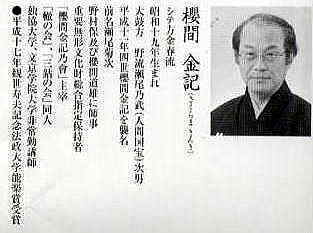 櫻間 金記（さくらま きんき）
シテ方金春流
昭和十九年生まれ
大鼓方 野流瀬尾乃武（人間国宝）次男
前名瀬尾菊次
平成十一年四世櫻間金記を襲名
野村保及び櫻間道雄に師事
重要無形文化財総合指定保持者
「櫻間金記乃會」主宰
「轍の会」、「三站の会」同人
独協大学、文京学院大学非常勤講師
●平成十七年観世寿夫記念法政大学能楽賞受賞